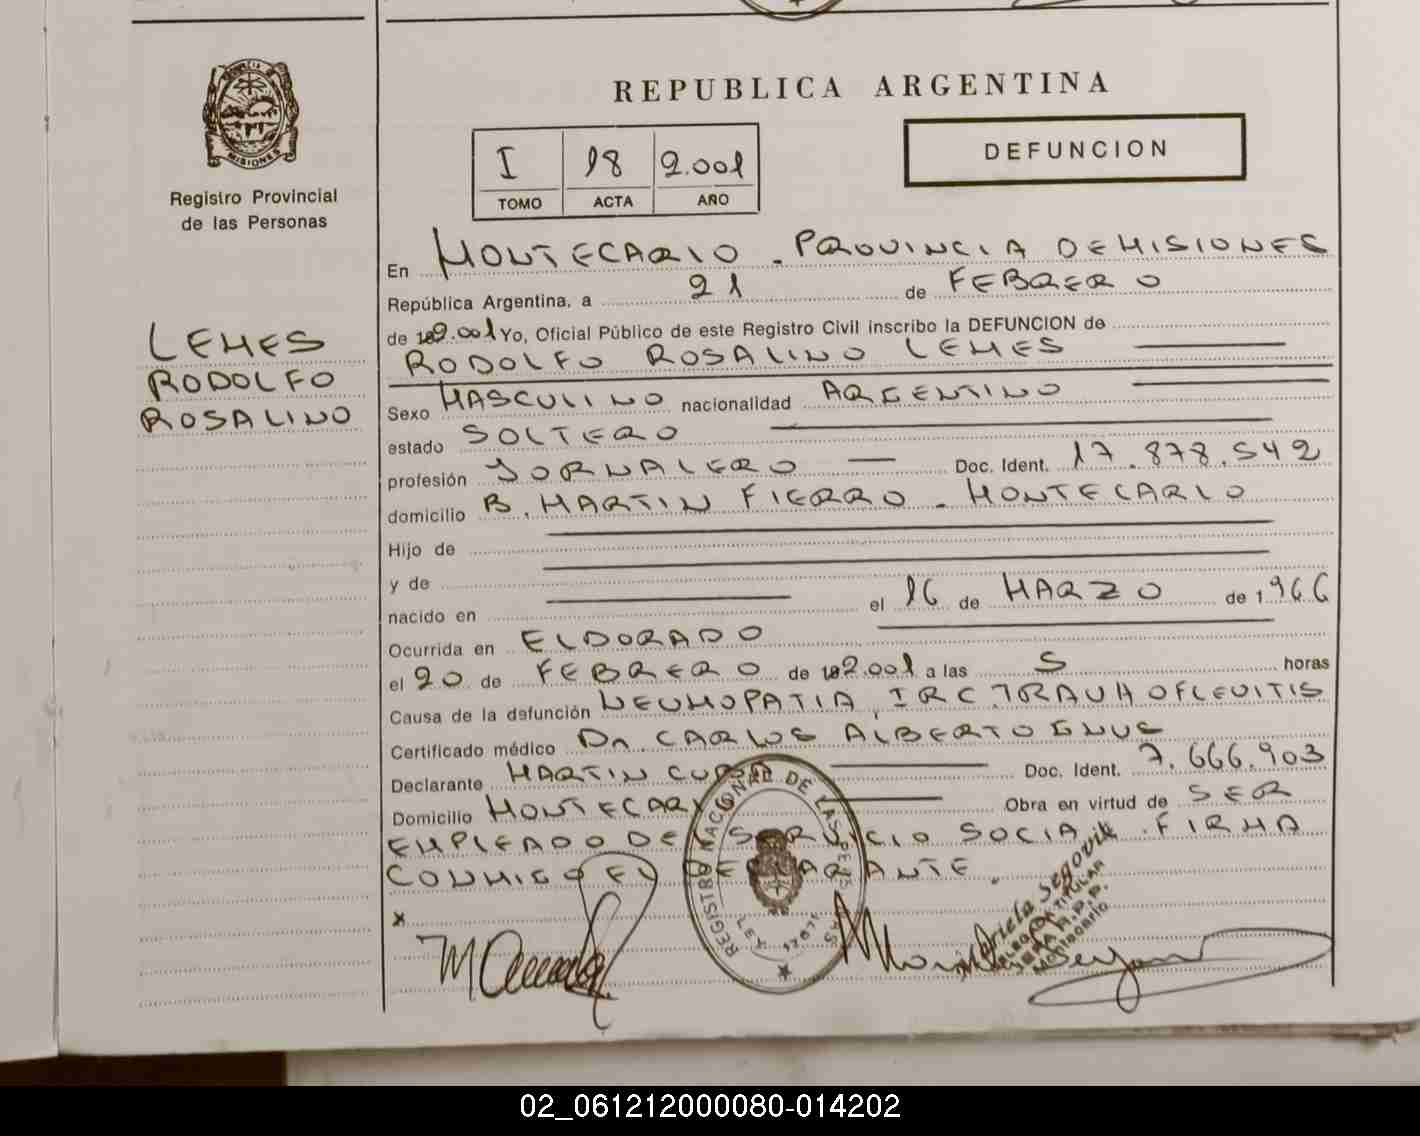 PROVINCIA DE
MISIONES
Registro Provincial
de las Personas
LEMES
RODOLFO
ROSALINO
REPUBLICA ARGENTINA
I 18 2.001
TOMO ACTA AÑO
DEFUNCION
En MONTECARLO - PROVINCIA DE MISIONES
República Argentina, a 21 de FEBRERO
de 2.001 Yo, Oficial Público de este Registro Civil inscribo la DEFUNCION de
RODOLFO ROSALINO LEMES
Sexo MASCULINO nacionalidad ARGENTINO
estado SOLTERO
profesión JORNALERO — Doc. Ident. 17.878.542
domicilio B. MARTIN FIERRO - MONTECARLO
Hijo de
y de
nacido en el 16 de MARZO de 1966
Ocurrida en ELDORADO
el 20 de FEBRERO de 2.001 a las 5 horas
Causa de la defunción NEUMOPATIA, IRC, TRAUMOFLEVITIS
Certificado médico Dr. CARLOS ALBERTO
Declarante MARTIN Doc. Ident. 7.666.903
Domicilio MONTECARLO Obra en virtud de SER
EMPLEADO DEL SERVICIO SOCIAL. FIRMA
CONMIGO EL DECLARANTE.
x
REGISTRO NACIONAL DE LAS PERSONAS
LEY
Segovia
TITULAR
02_061212000080-014202